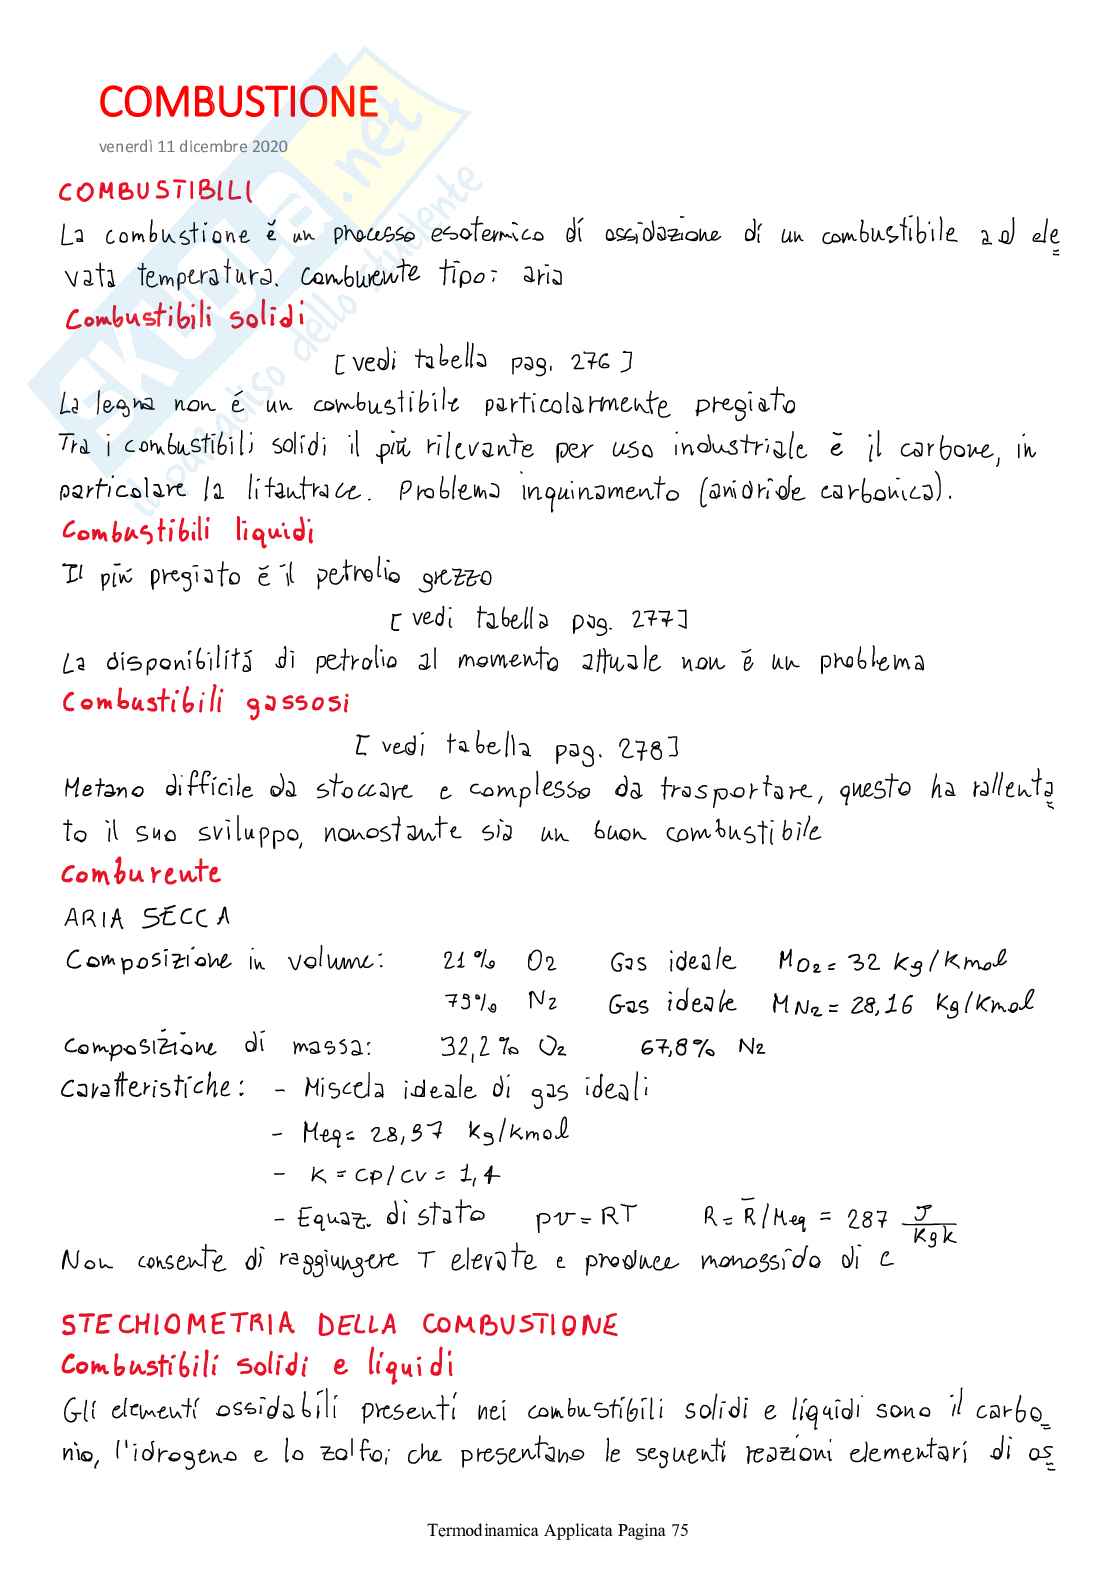 COMBUSTIONE
venerdì 11 dicembre 2020
COMBUSTIBILI
La combustione é un processo esotermico di ossidazione di un combustibile ad ele
vata temperatura. Comburente tipo: aria
Combustibili solidi
[vedi tabella pag. 276]
La legna non é un combustibile particolarmente pregiato
Tra i combustibili solidi il piú rilevante per uso industriale é il carbone, in
particolare la litantrace. Problema inquinamento (anidride carbonica).
Combustibili liquidi
Il piú pregiato é il petrolio grezzo
[vedi tabella pag. 277]
La disponibilitá di petrolio al momento attuale non é un problema
Combustibili gassosi
[vedi tabella pag. 278]
Metano difficile da stoccare e complesso da trasportare, questo ha rallenta
to il suo sviluppo, nonostante sia un buon combustibile
Comburente
ARIA SECCA
Composizione in volume: 21% O2 Gas ideale MO2 = 32 Kg/Kmol
79% N2 Gas ideale MN2 = 28,16 Kg/Kmol
Composizione di massa: 32,2% O2 67,8% N2
Caratteristiche: - Miscela ideale di gas ideali
- Meq = 28,97 Kg/Kmol
- K = cp/cv = 1,4
- Equaz. di stato pv = RT R = R̄/Meq = 287 J/KgK
Non consente di raggiungere T elevate e produce monossido di C
STECHIOMETRIA DELLA COMBUSTIONE
Combustibili solidi e liquidi
Gli elementi ossidabili presenti nei combustibili solidi e liquidi sono il carbo
nio, l'idrogeno e lo zolfo; che presentano le seguenti reazioni elementari di os
Termodinamica Applicata Pagina 75
SKUOLA.net
il paradiso dello studente